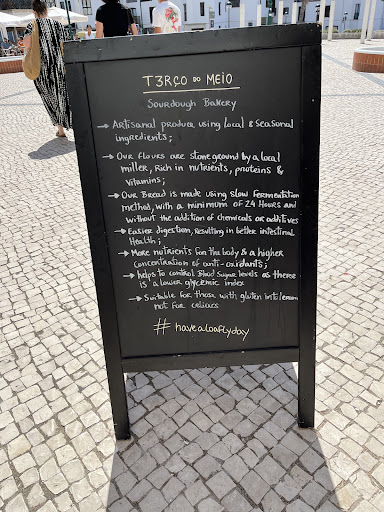 T3RÇO DO MEIO
Sourdough Bakery
→ Artisanal produce using local & seasonal
ingredients;
→ Our flours are stoneground by a local
miller, Rich in nutrients, proteins &
vitamins;
→ Our Bread is made using slow fermentation
method, with a minimum of 24 Hours and
without the addition of chemicals or additives
→ Easier digestion, resulting in better intestinal
Health;
→ More nutrients for the body & a higher
concentration of anti-oxidants;
→ helps to control Blood sugar levels as there
is a lower glycemic index
→ Suitable for those with gluten intolerance
not for celiacs
# havealoaflyday